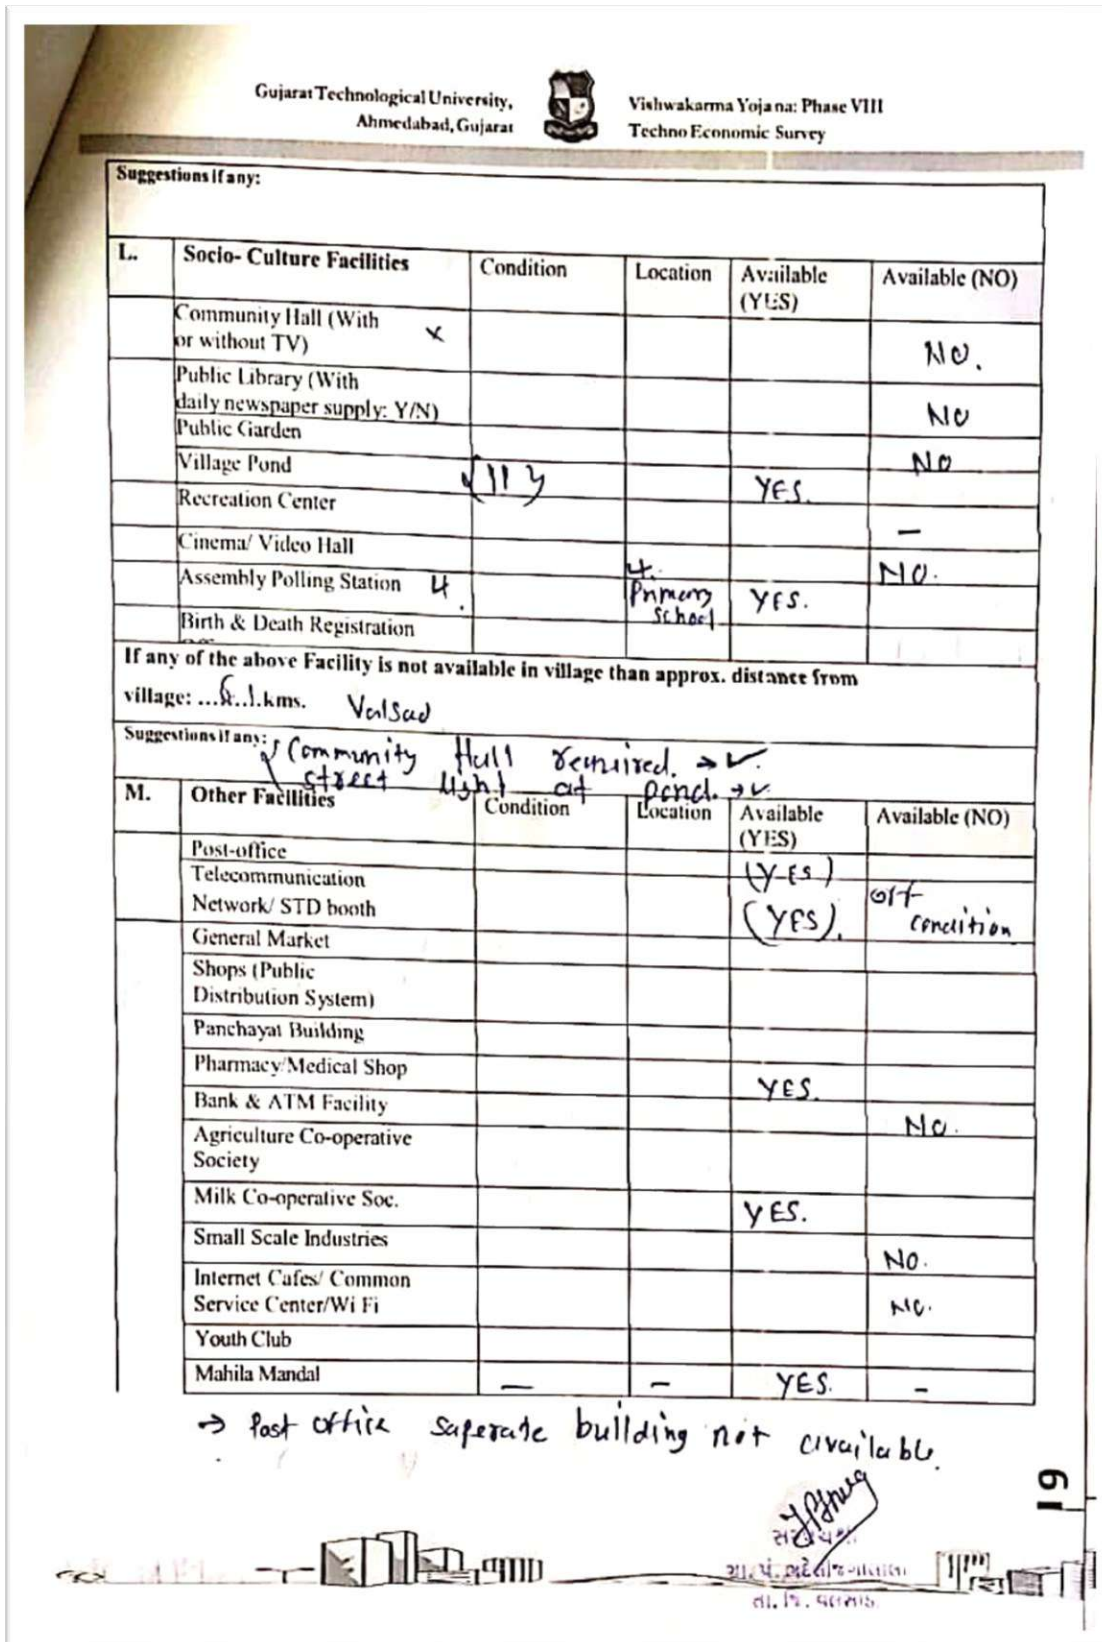 Gujarat Technological University,
Ahmedabad, Gujarat
Vishwakarma Yojana: Phase VIII
Techno Economic Survey
Suggestions if any:
L. Socio- Culture Facilities Condition Location Available (YES) Available (NO)
Community Hall (With or without TV) x NO.
Public Library (With daily newspaper supply: Y/N) NO
Public Garden NO
Village Pond (11) YES.
Recreation Center –
Cinema/ Video Hall NO.
Assembly Polling Station 4. 4. Primary school YES.
Birth & Death Registration
If any of the above Facility is not available in village than approx. distance from
village: kms. Valsad
Suggestions if any: Community Hall required. → ✓.
street light at pond. → ✓
M. Other Facilities Condition Location Available (YES) Available (NO)
Post-office (YES)
Telecommunication Network/ STD booth (YES). off condition
General Market
Shops (Public Distribution System)
Panchayat Building
Pharmacy/Medical Shop YES.
Bank & ATM Facility NO.
Agriculture Co-operative Society
Milk Co-operative Soc. YES.
Small Scale Industries NO.
Internet Cafes/ Common Service Center/Wi Fi NO.
Youth Club
Mahila Mandal – – YES. –
→ Post office saperate building not available.
19